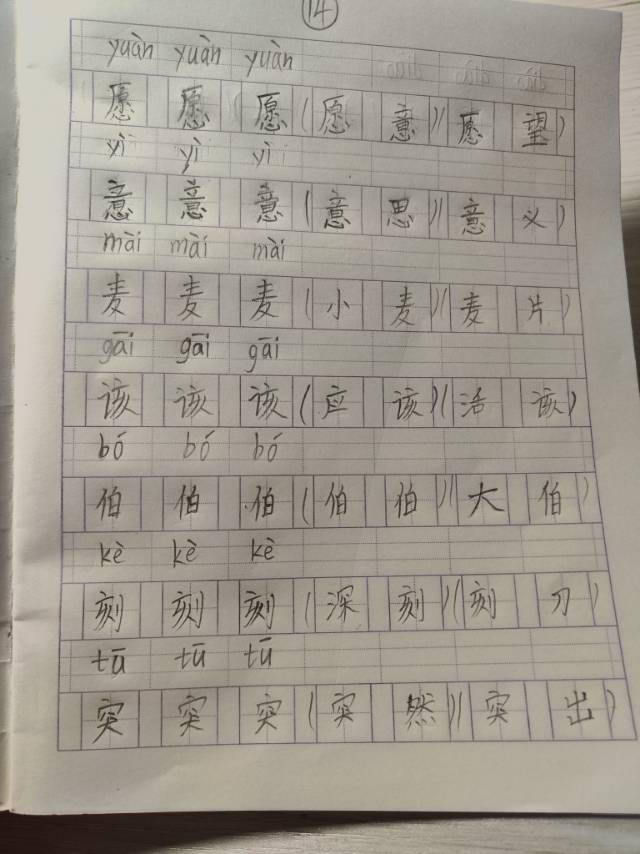 14
yuàn yuàn yuàn
愿 愿 愿 (愿 意)(愿 望)
yì yì yì
意 意 意 (意 思)(意 义)
mài mài mài
麦 麦 麦 (小 麦)(麦 片)
gāi gāi gāi
该 该 该 (应 该)(活 该)
bó bó bó
伯 伯 伯 (伯 伯)(大 伯)
kè kè kè
刻 刻 刻 (深 刻)(刻 刀)
tū tū tū
突 突 突 (突 然)(突 出)